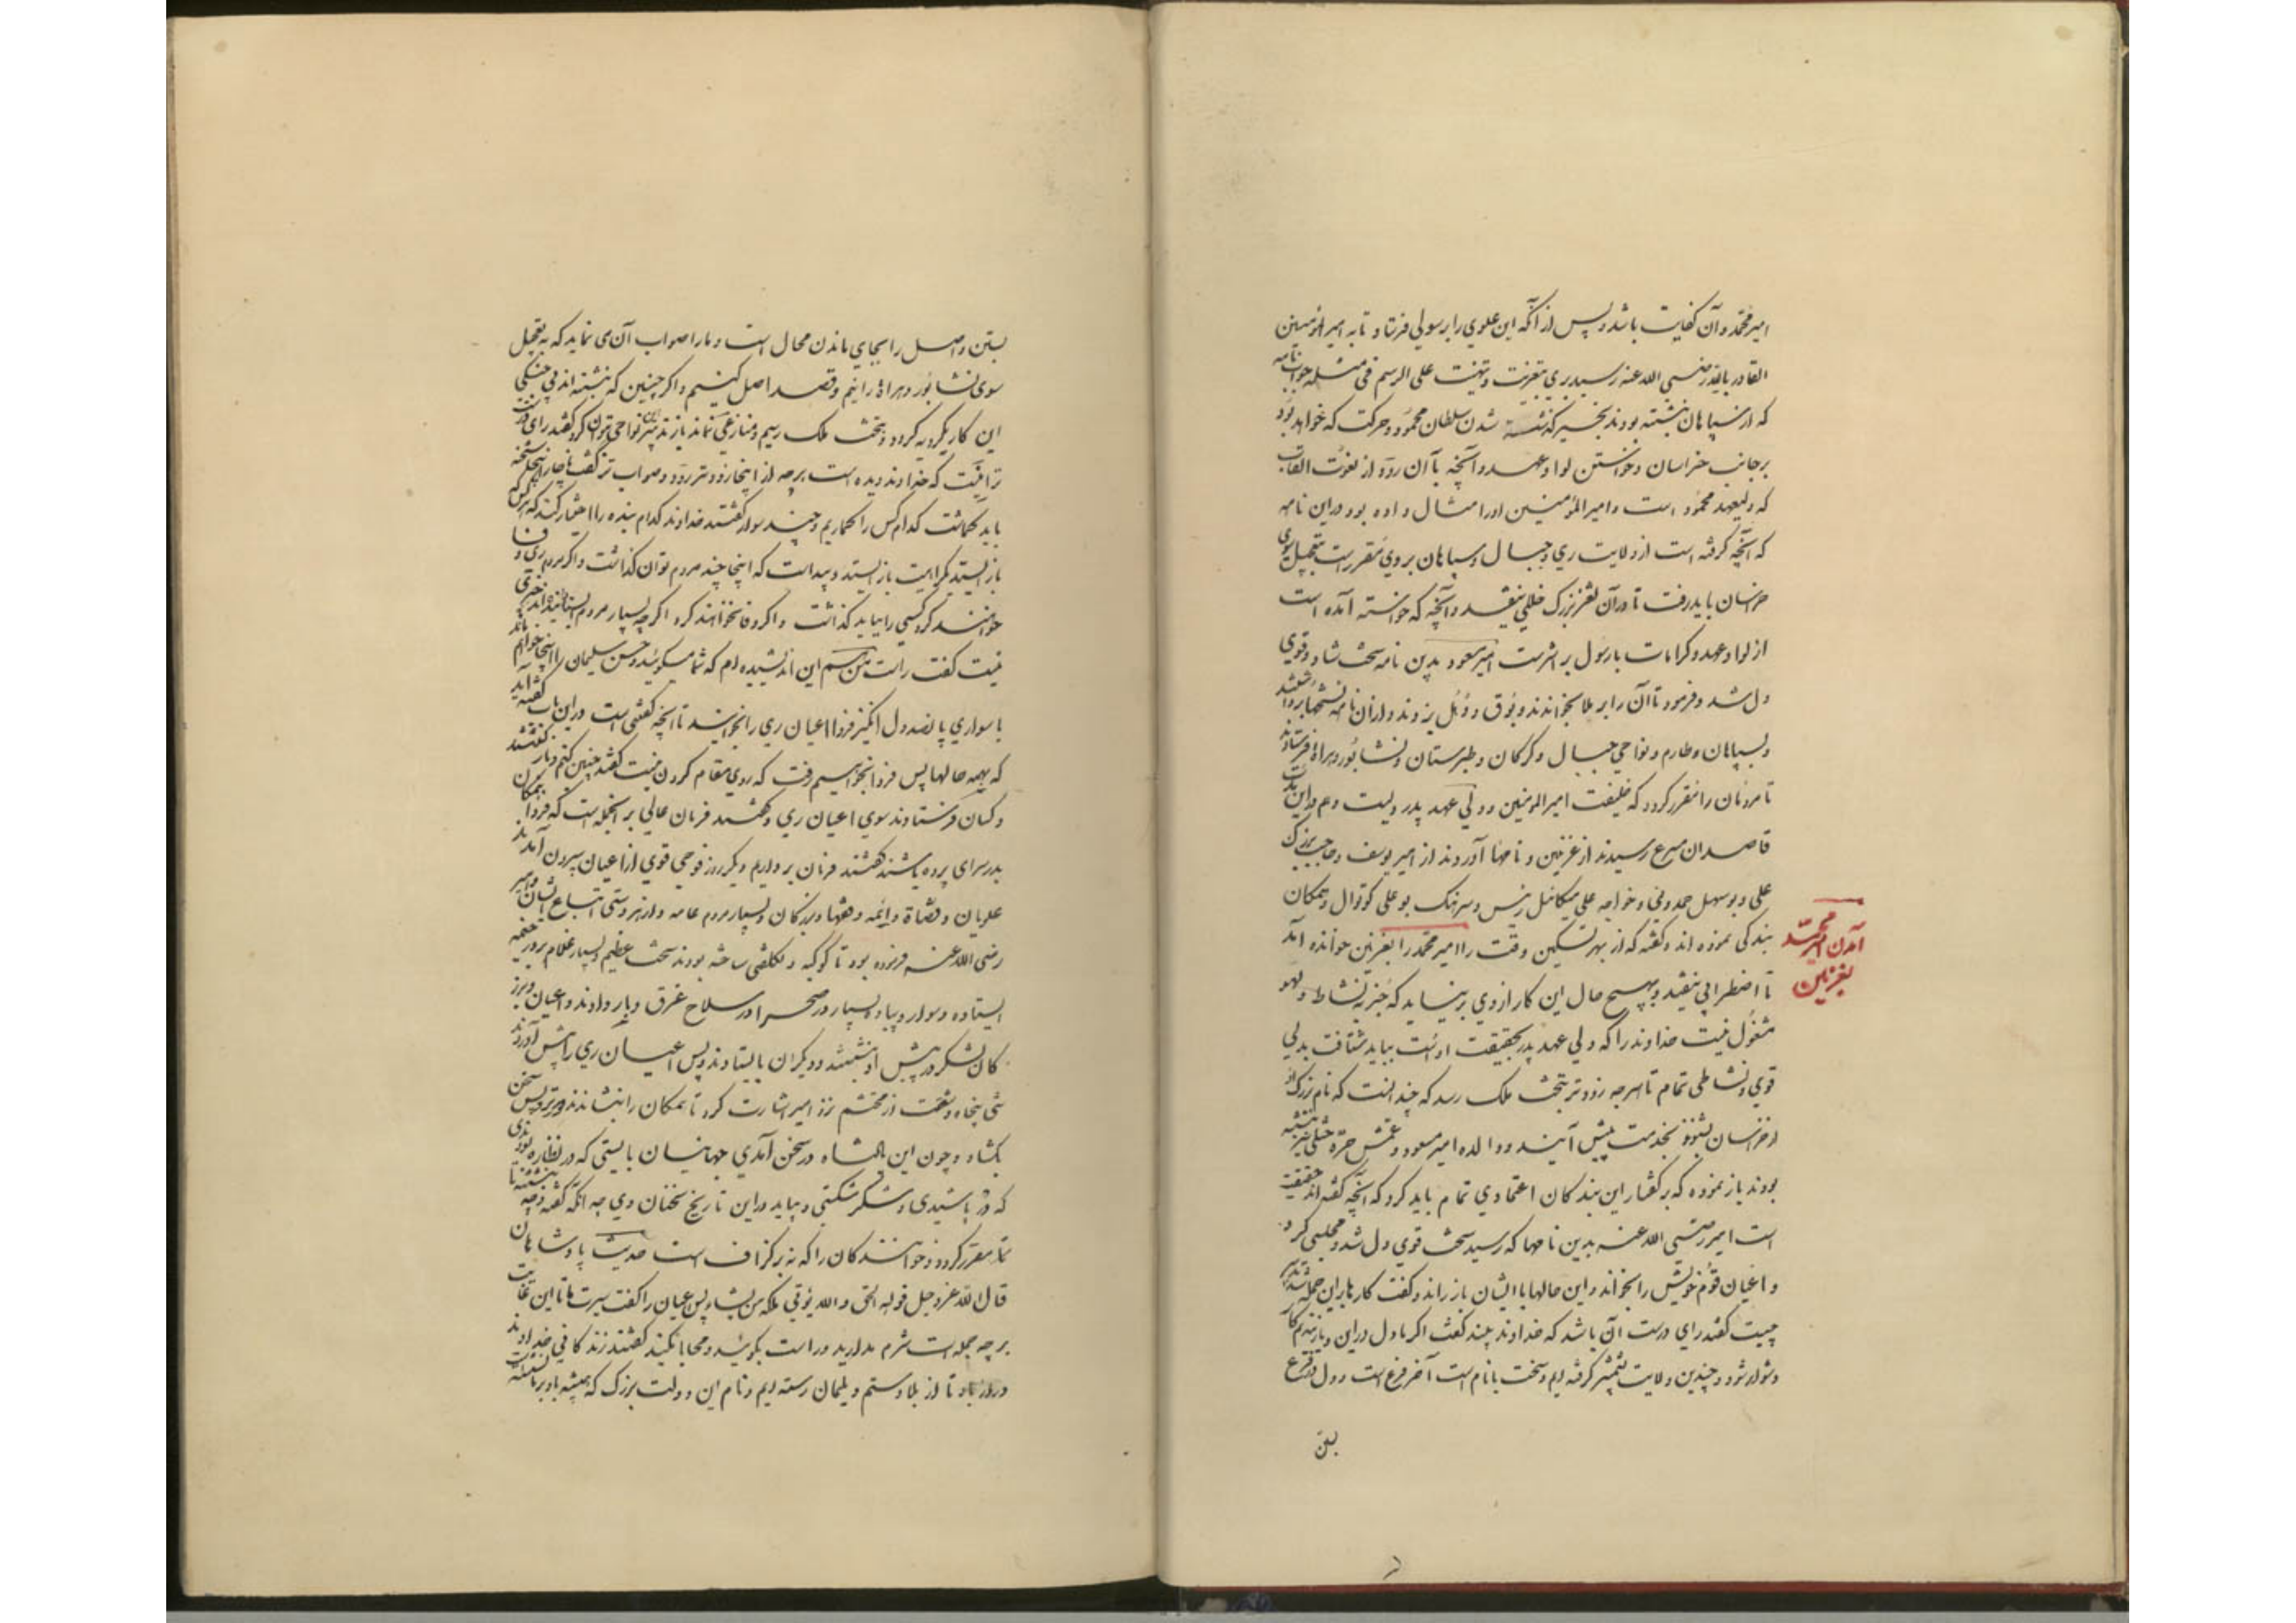 امیر محمد و آن کفایت باشد و پس از آنکه این علوی را برسولی فرستاد تا به امیر المؤمنین
القادر بالله رضی الله عنه رسید بری بتعزیت و تهنیت علی الرسم فی مثله جواب نامه
که از سپاهان نبشته بودند بخبر گذشته شدن سلطان محمود و حرکت که خواهد بود
بر جانب خراسان و خواستن لوا و عهد و آنچه با آن رود از نعوت القاب
که ولیعهد محمود است و امیر المؤمنین او را مثال داده بود در این نامه
که آنچه گرفته است از ولایت ری و جبال و سپاهان بر وی مقرر است بتعجیل سوی
خراسان باید رفت تا در آن ثغر بزرگ خللی نیفتد و آنچه که خواسته آمده است
از لوا و عهد و کرامات با رسول بر اثر است امیر مسعود بدین نامه سخت شاد و قوی
دل شد و فرمود تا آن را بر ملا بخواندند و بوق و دهل بزدند و از آن نامه نسختها برداشتند
و بسپاهان و طارم و نواحی جبال و گرگان و طبرستان و نشابور و هراة فرستادند
تا مردمان را مقرر گردد که خلیفت امیر المومنین و ولی عهد پدر ویست و هم در این مدت
قاصدان مسرع رسیدند از غزنین و نامها آوردند از امیر یوسف و حاجب بزرگ
علی و بوسهل حمدونی و خواجه علی میکائیل رئیس و سرهنگ بو علی کوتوال و همکان
آمدن امیر محمد بغزنین
بندگی نموده اند و گفته که از بهر تسکین وقت را امیر محمد را بغزنین خوانده آمد
تا اضطرابی نیفتد و بهیچ حال این کار از وی برنیاید که جز به نشاط و لهو
مشغول نیست خداوند را که ولی عهد پدر بحقیقت اوست بباید شتافت بدلی
قوی و نشاطی تمام تا هر چه زودتر بتخت ملک رسد که چندانست که نام بزرگ او
از خراسان بشنوند بخدمت پیش آیند و والده امیر مسعود و عمتش حره ختلی نیز نبشته
بودند باز نموده که بر گفتار این بندگان اعتمادی تمام باید کرد که آنچه گفته اند حقیقت
است امیر رضی الله عنه بدین نامها که رسید سخت قوی دل شد و مجلسی کرد
و اعیان قوم خویش را بخواند و این حالها با ایشان باز راند و گفت کارها بر این جمله شد تدبیر
چیست گفتند رای درست آن باشد که خداوند بیند گفت اگر ما دل در این دیار بندیم کار
دشوار شود و چندین ولایت بشمشیر گرفته ایم و سخت با نام است آخر فرع است و دل در فرع
بستن
بستن و اصل را بجای ماندن محال است و ما را صواب آن می نماید که به تعجیل
سوی نشابور و هراة رانیم و قصد اصل کنیم و اگر چنین که نبشته اند بی جنگی
این کار یکرویه گردد و بتخت ملک رسیم و منازعی نماند باز تدبیر این نواحی بتوان کرد گفتند رای درست
تر اینست که خداوند دیده است هر چه از اینجا زودتر رود صواب تر گفت ناچار اینجا شحنه
باید گماشت کدام کس را گماریم و چند سوار گفتند خداوند کدام بنده را اختیار کند که هر کس که
باز ایستد بکراهیت باز ایستد و پیداست که اینجا چند مردم توان گذاشت و اگر مردم ری وفا
خواهند کرد کسی را بباید گذاشت و اگر وفا نخواهند کرد اگر چه بسیار مردم ایستانیده آید خیری
نیست گفت راست من هم این اندیشیده ام که شما میگوئید و حسن سلیمان را اینجا خواهم ماند
با سواری پانصد دل انگیز فردا اعیان ری را بخوانید تا آنچه گفتنی است در این باب گفته آید
که بهمه حالها پس فردا بخواهیم رفت که روی مقام کردن نیست گفتند چنین کنیم و باز گشتند
و کسان فرستادند سوی اعیان ری و گفتند فرمان عالی بر آنجمله است که فردا همگان
بدر سرای پرده باشند گفتند فرمان برداریم دیگر روز فوجی قوی از اعیان بیرون آمدند
علویان و قضاة و ائمه و فقها و بزرگان و بسیار مردم عامه و از هر دستی اتباع ایشان و امیر
رضی الله عنه فرموده بود تا کوکبه و تکلفی ساخته بودند سخت عظیم و بسیار غلام بر در خیمه
ایستاده و سوار و پیاده بسیار در صحرا در سلاح غرق و بار دادند و اعیان و بزر
گان لشکر در پیش او بنشستند و دیگران بایستادند و پس اعیان ری را پیش آوردند
تنی پنجاه و شصت از محتشم تر امیر اشارت کرد تا همگان را بنشاندند دورتر و پس سخن
بگشاد و چون این پادشاه در سخن آمدی جهانیان بایستی که در نظاره بودندی
که در پاشیدی و شکر شکستی و بیاید در این تاریخ سخنان وی چه آنکه گفته و چه نبشته تا
مقرر گردد خوانندگان را که نه برگزاف است حدیث پادشاهان
قال الله عز و جل قوله الحق و الله یؤتی ملکه من یشاء پس اعیان را گفت سیرت ما تا این غایت
بر چه جمله است شرم مدارید و راست بگوئید و محابا نکنید گفتند زندگانی خداوند
دراز باد تا از بلا و ستم دیلمان رسته ایم و نام این دولت بزرگ که همیشه باد بر ما نشسته است